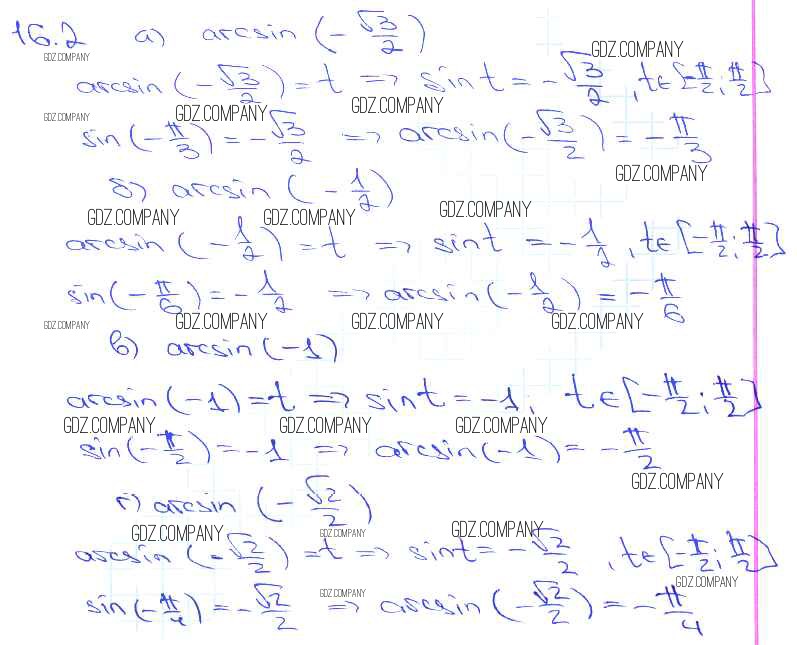 16.2 а) arcsin (-√3/2)
GDZ.COMPANY GDZ.COMPANY
arcsin (-√3/2) = t => sin t = -√3/2, t∈[-π/2; π/2]
GDZ.COMPANY GDZ.COMPANY GDZ.COMPANY
sin(-π/3) = -√3/2 => arcsin(-√3/2) = -π/3
GDZ.COMPANY
б) arcsin (-1/2)
GDZ.COMPANY GDZ.COMPANY GDZ.COMPANY
arcsin (-1/2) = t => sin t = -1/2, t∈[-π/2; π/2]
sin(-π/6) = -1/2 => arcsin(-1/2) = -π/6
GDZ.COMPANY GDZ.COMPANY GDZ.COMPANY GDZ.COMPANY
в) arcsin(-1)
arcsin(-1) = t => sin t = -1; t∈[-π/2; π/2]
GDZ.COMPANY GDZ.COMPANY GDZ.COMPANY
sin(-π/2) = -1 => arcsin(-1) = -π/2
GDZ.COMPANY
г) arcsin (-√2/2)
GDZ.COMPANY GDZ.COMPANY GDZ.COMPANY
arcsin (-√2/2) = t => sin t = -√2/2, t∈[-π/2; π/2]
GDZ.COMPANY GDZ.COMPANY
sin(-π/4) = -√2/2 => arcsin (-√2/2) = -π/4